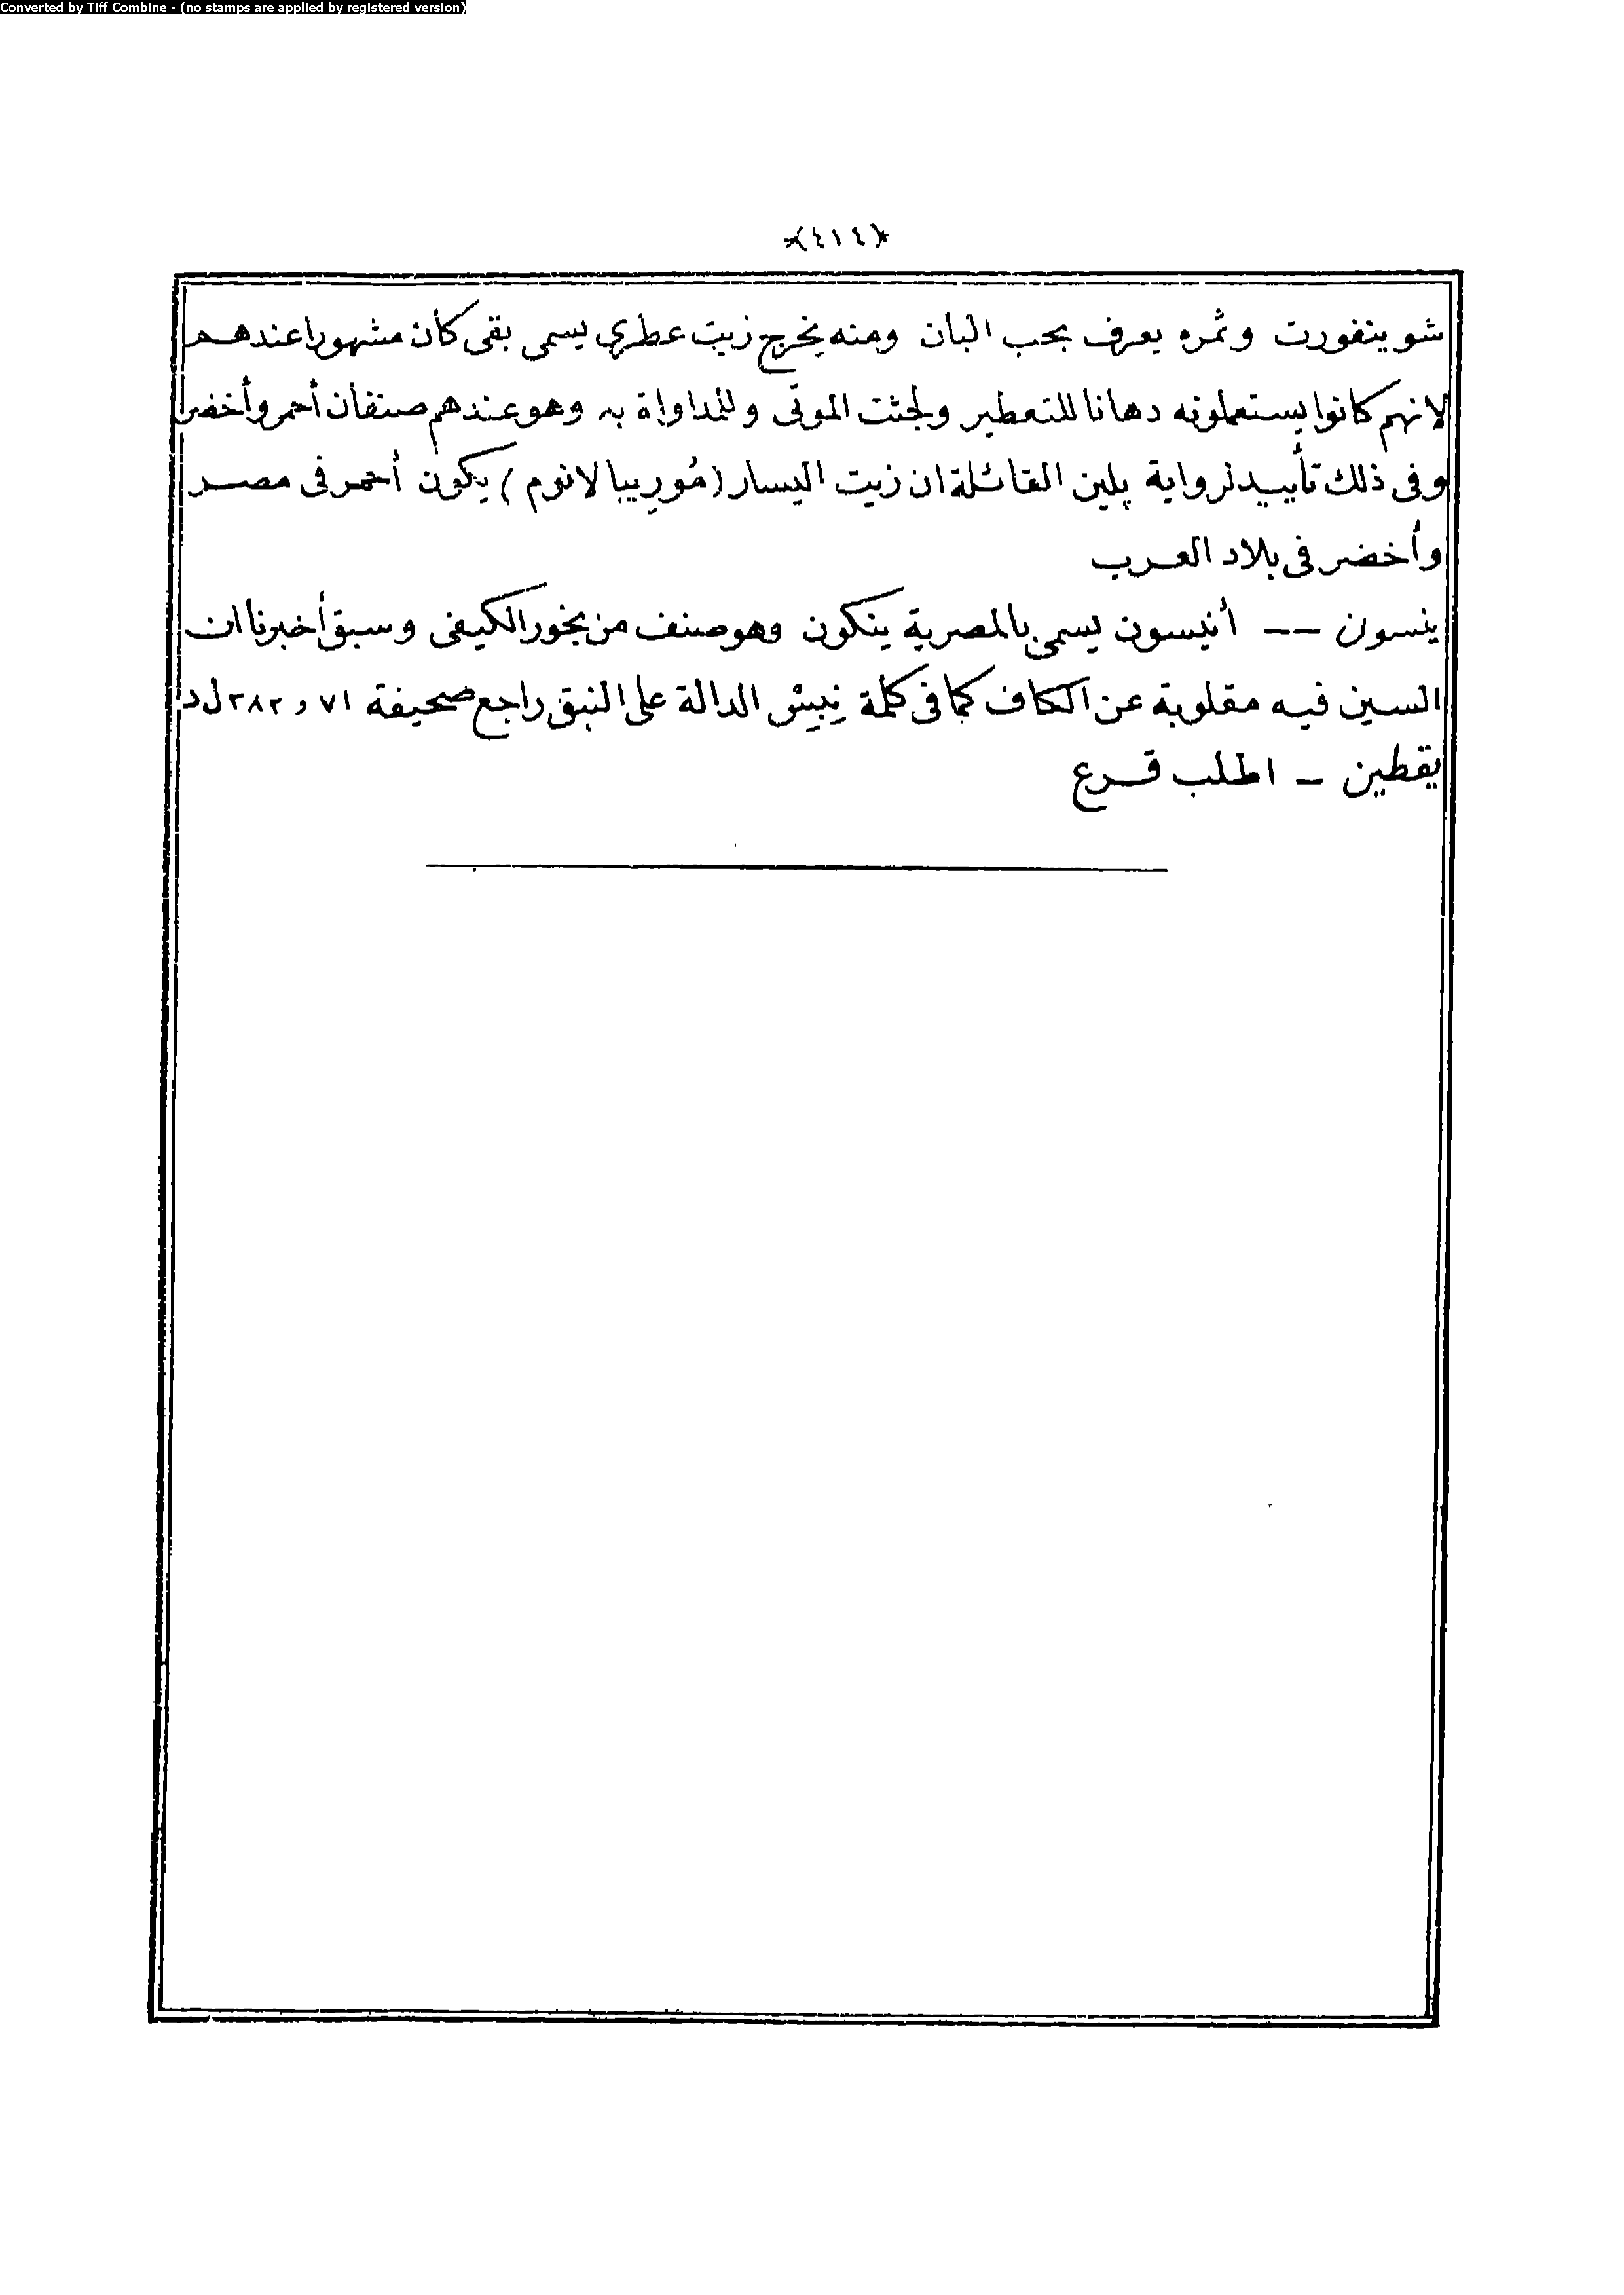 Converted by Tiff Combine - (no stamps are applied by registered version)
*(٤١٤)*
شوينفورت وثمره يعرف بحب البان ومنه يخرج زيت عطري يسمى بقى كان مشهورا عندهم
لانهم كانوا يستعملونه دهانا للتعطير ولجثت الموتى وللمداواة به وهو عندهم صنفان أحمر وأخضر
وفى ذلك تأييد لرواية پلين القائلة ان زيت اليسار (مُورِيبالانوم) يكون أحمر فى مصر
وأخضر فى بلاد العرب
ينسون -- أنيسون يسمى بالمصرية ينكون وهو صنف من بخور الكيفى وسبق أخبرنا ان
السين فيه مقلوبة عن الكاف كما فى كلمة نِبِسْ الدالة على النبق راجع صحيفة ٧١ و ٣٨٢ ل د
يقطين - اطلب قرع